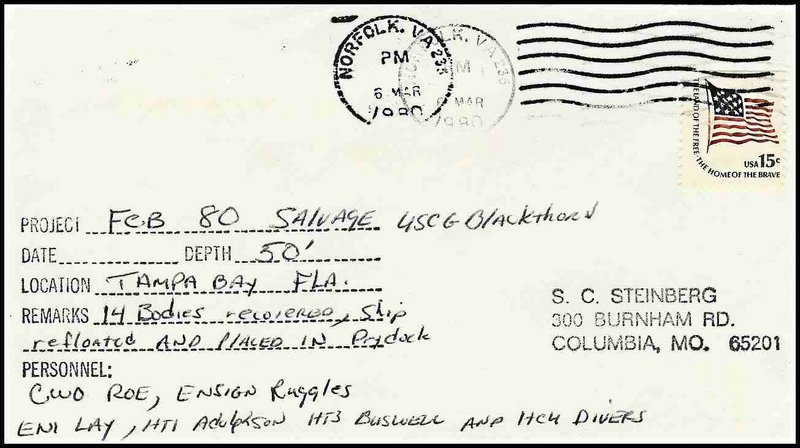 NORFOLK, VA 235
PM
6 MAR
1980
NORFOLK, VA 235
PM
6 MAR
1980
THE LAND OF THE FREE · THE HOME OF THE BRAVE
USA 15c
PROJECT FEB 80 SALVAGE USCG Blackthorn
DATE DEPTH 50'
LOCATION TAMPA BAY FLA.
REMARKS 14 Bodies recovered, Ship
refloated AND PLACED IN Drydock
PERSONNEL:
CWO ROE, ENSIGN Ruggles
EN1 LAY, HT1 HT3 BUSWELL AND HCU DIVERS
S. C. STEINBERG
300 BURNHAM RD.
COLUMBIA, MO. 65201